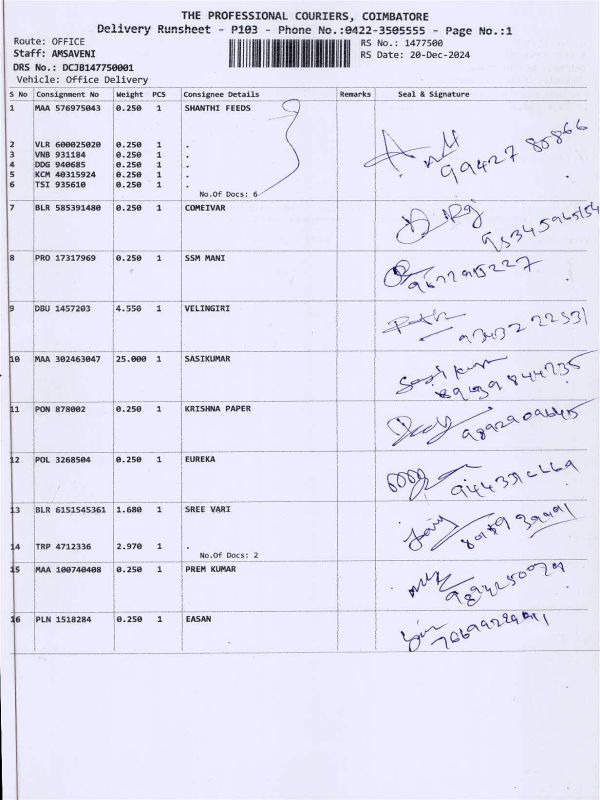 THE PROFESSIONAL COURIERS, COIMBATORE
Delivery Runsheet - P103 - Phone No.:0422-3505555 - Page No.:1
Route: OFFICE RS No.: 1477500
Staff: AMSAVENI RS Date: 20-Dec-2024
DRS No.: DCJB147750001
Vehicle: Office Delivery
S No Consignment No Weight PCS Consignee Details Remarks Seal & Signature
1 MAA 576975043 0.250 1 SHANTHI FEEDS
2 VLR 600025020 0.250 1 .
3 VNB 931184 0.250 1 .
4 DDG 940685 0.250 1 .
5 KCM 40315924 0.250 1 .
6 TSI 935610 0.250 1 .
No.Of Docs: 6
7 BLR 585391480 0.250 1 COMEIVAR
8 PRO 17317969 0.250 1 SSM MANI
9 DBU 1457203 4.550 1 VELINGIRI
10 MAA 302463047 25.000 1 SASIKUMAR
Sasikumar
11 PON 878002 0.250 1 KRISHNA PAPER
12 POL 3268504 0.250 1 EUREKA
13 BLR 6151545361 1.680 1 SREE VARI
14 TRP 4712336 2.970 1 .
No.Of Docs: 2
15 MAA 100740408 0.250 1 PREM KUMAR
16 PLN 1518284 0.250 1 EASAN